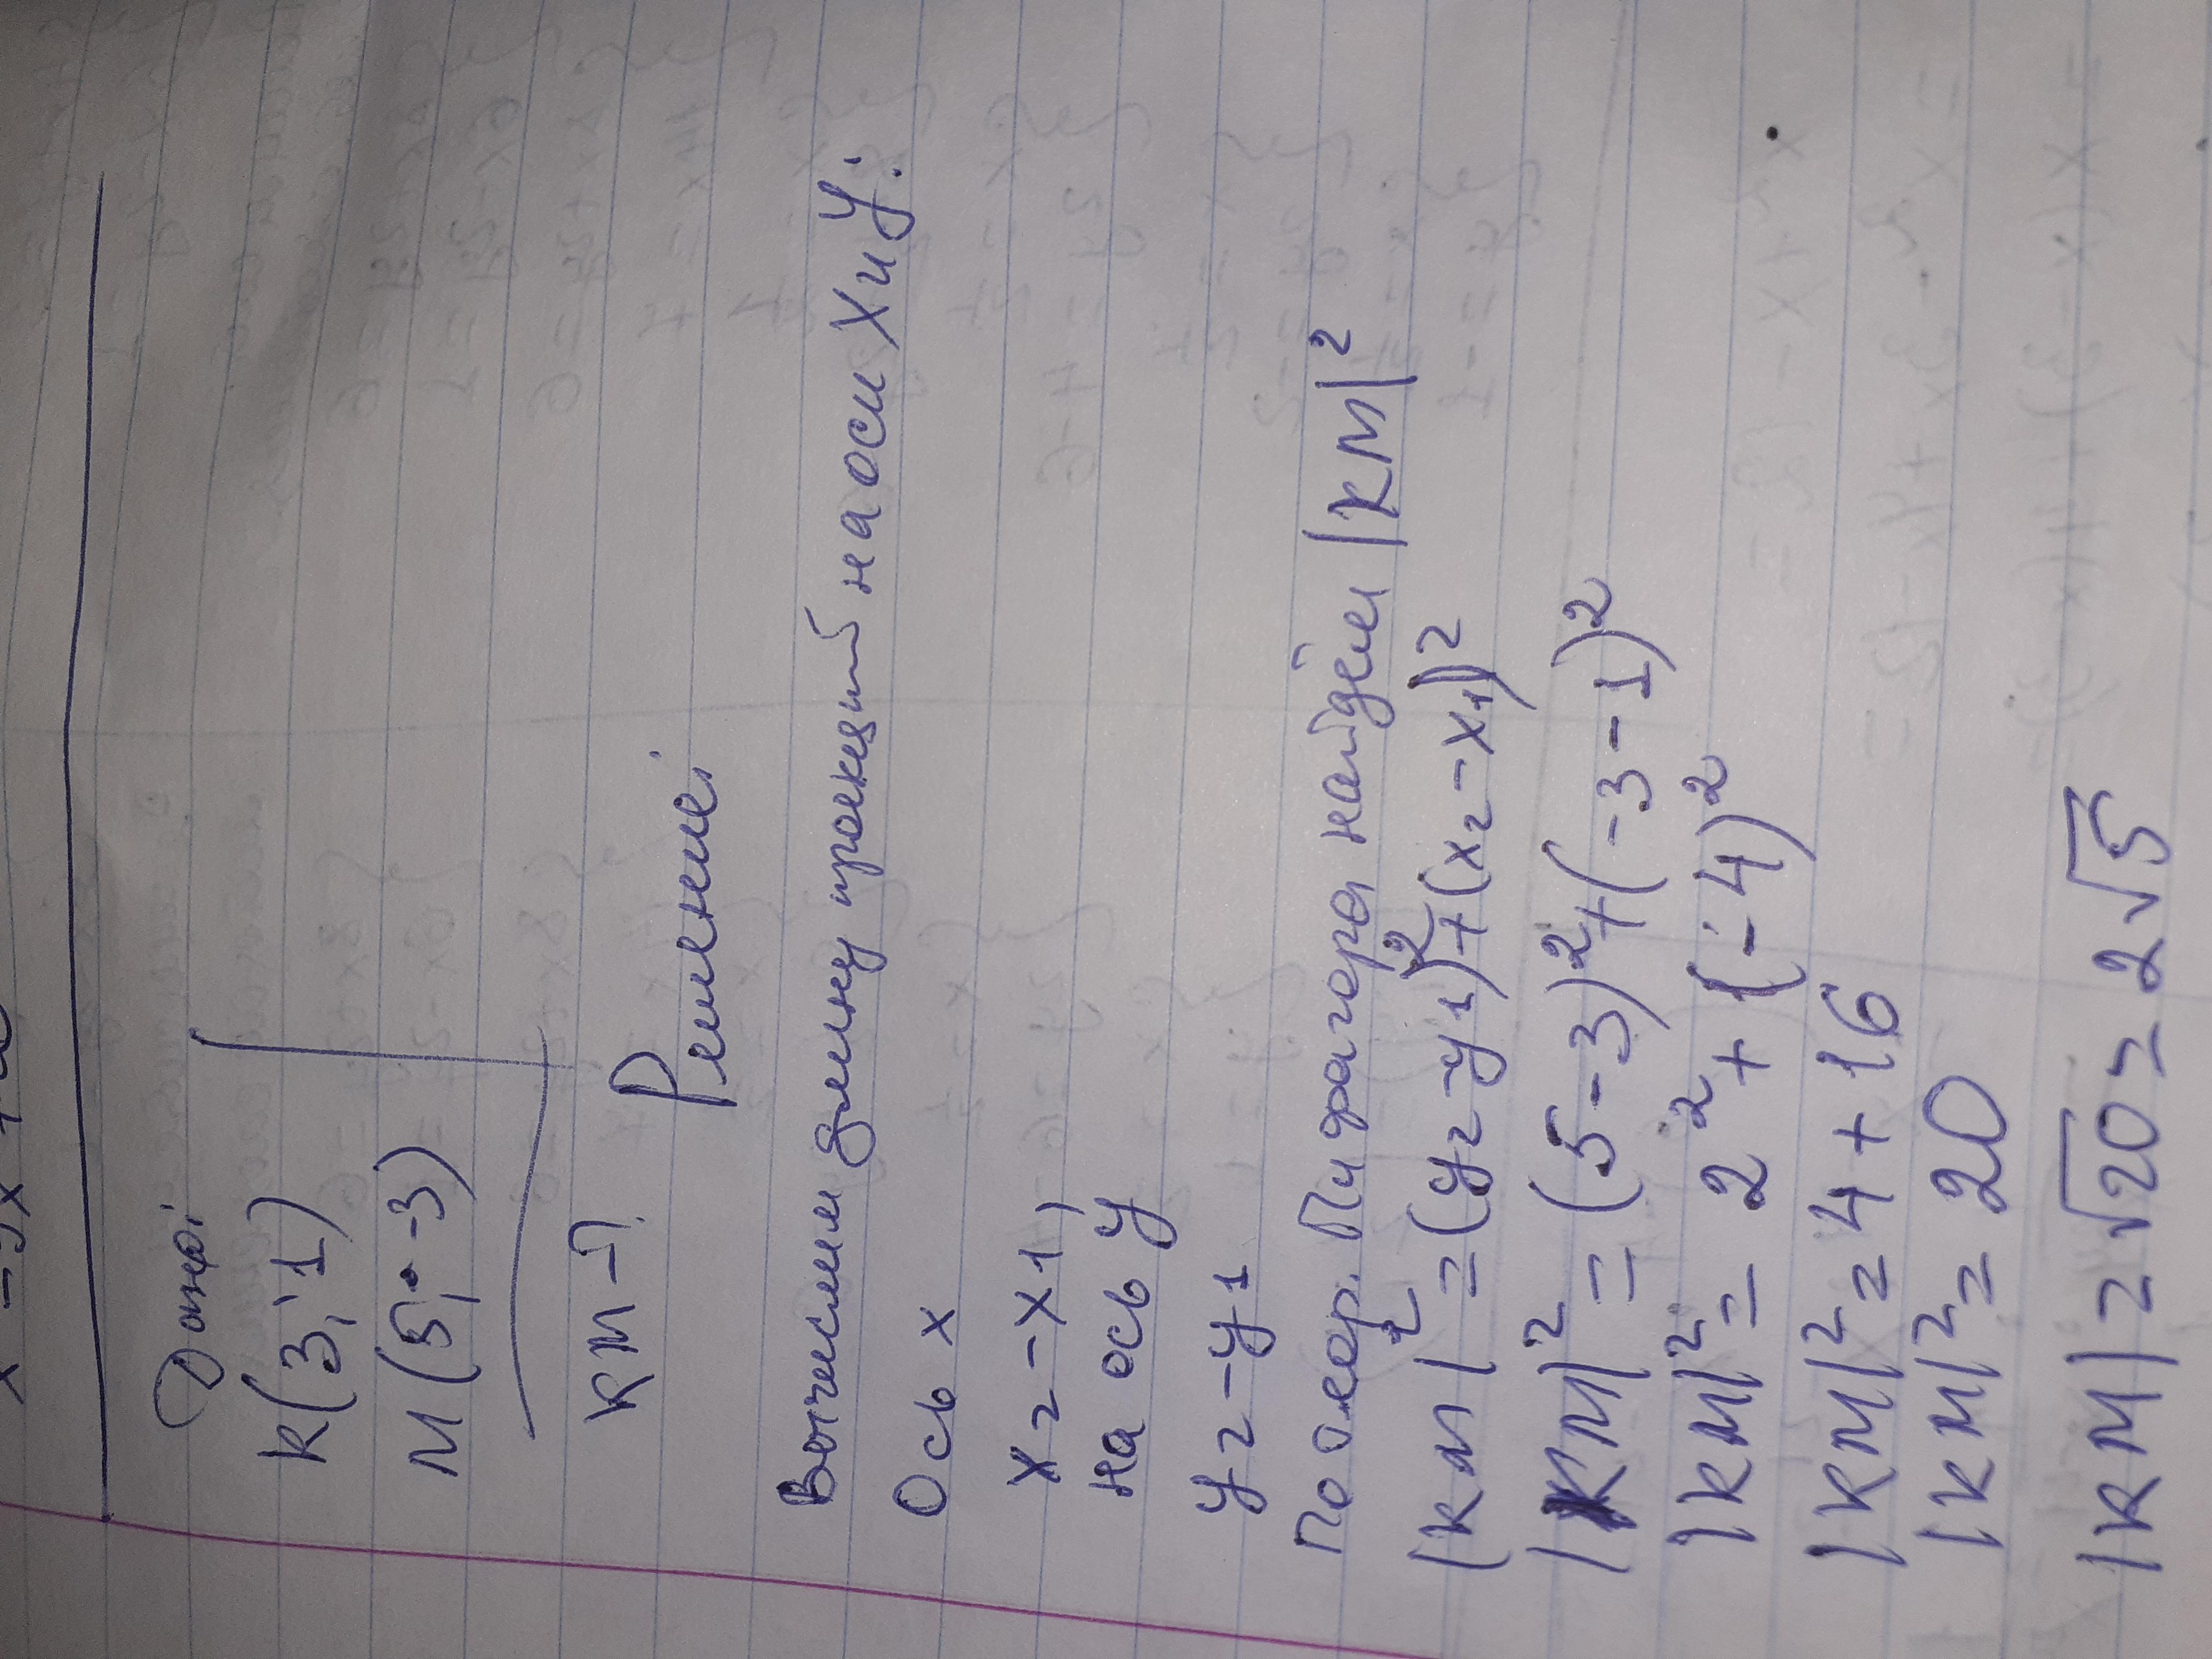 Дано:
K(3; 1)
M(5; -3)
KM - ?
Решение:
Вычислим длину проекций на оси X и У:
Ось x
x2 - x1,
на ось у
у2 - у1
По теор. Пифагора найдём |KM|²
|KM|² = (y₂ - y₁)² + (x₂ - x₁)²
|KM|² = (5 - 3)² + (-3 - 1)²
|KM|² = 2² + (-4)²
|KM|² = 4 + 16
|KM|² = 20
|KM| = √20 = 2√5